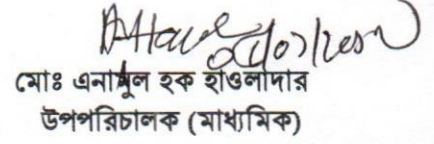 মোঃ এনামুল হক হাওলাদার
উপপরিচালক (মাধ্যমিক)